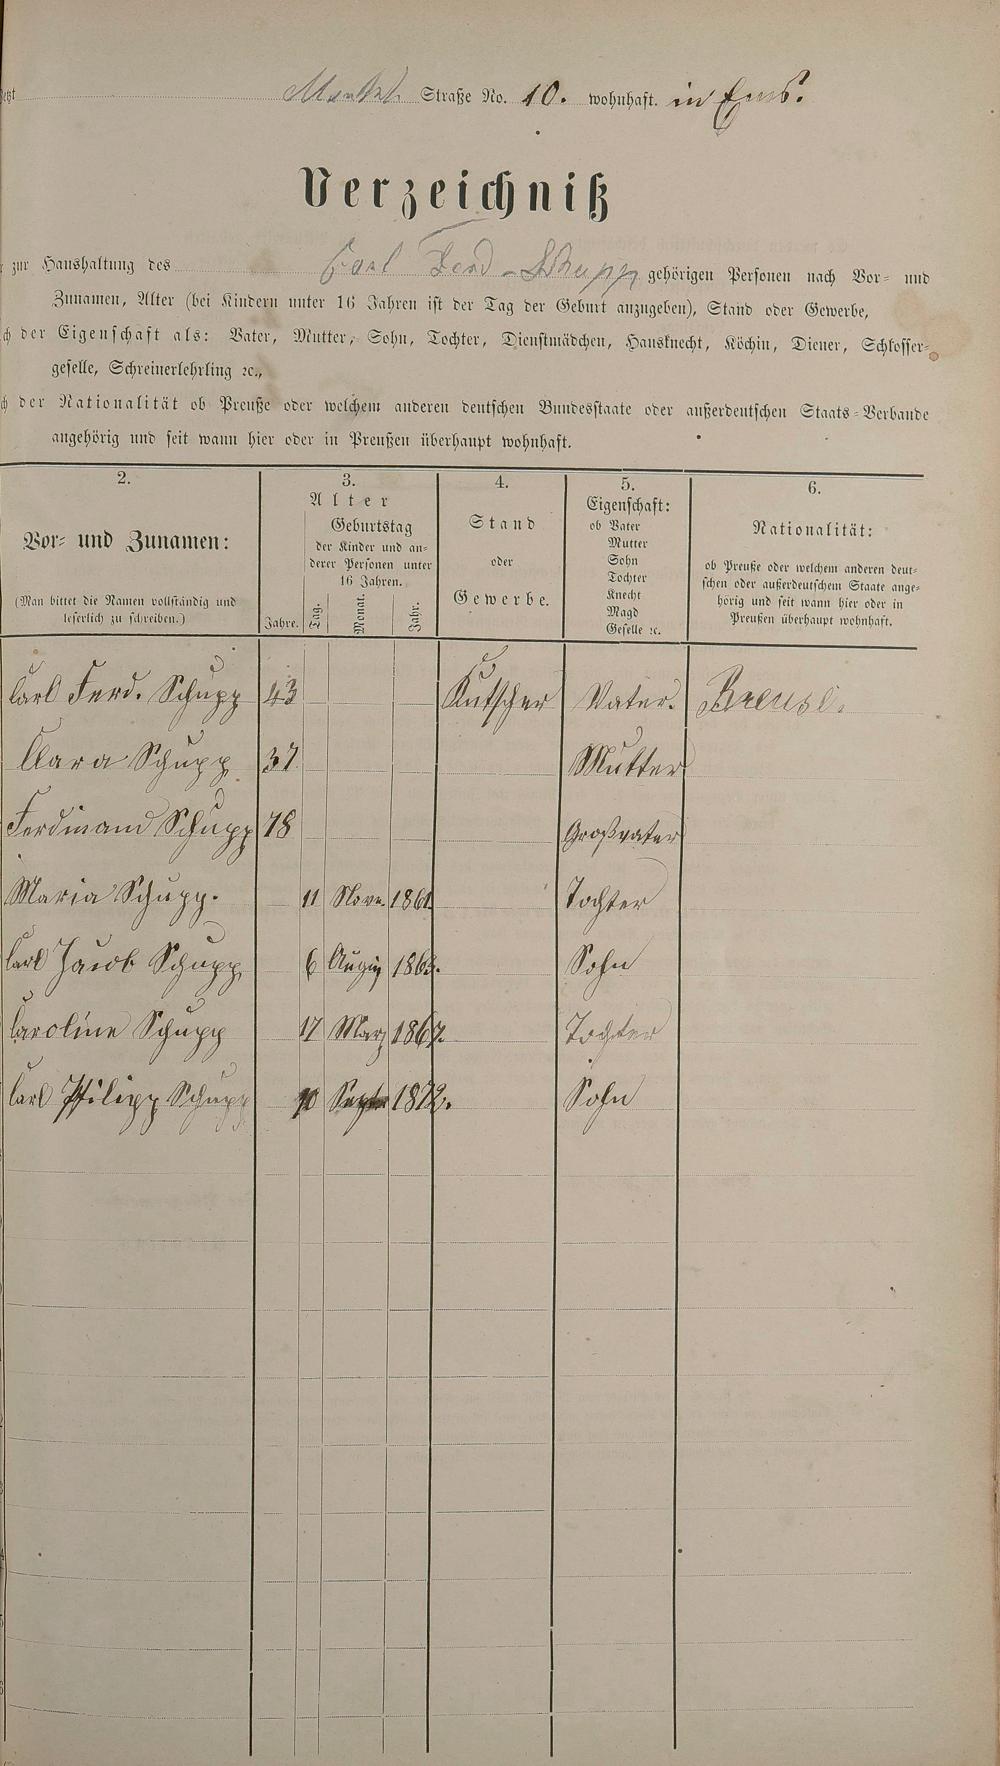 Markt. Straße No. 10. wohnhaft. in Ems.
Verzeichniß
zur Haushaltung des Carl Ferd. Schupp gehörigen Personen nach Vor- und
Zunamen, Alter (bei Kindern unter 16 Jahren ist der Tag der Geburt anzugeben), Stand oder Gewerbe,
der Eigenschaft als: Vater, Mutter, Sohn, Tochter, Dienstmädchen, Hausknecht, Köchin, Diener, Schlosser-
geselle, Schreinerlehrling ꝛc.,
der Nationalität ob Preuße oder welchem anderen deutschen Bundesstaate oder außerdeutschen Staats-Verbande
angehörig und seit wann hier oder in Preußen überhaupt wohnhaft.
2.
Vor- und Zunamen:
(Man bittet die Namen vollständig und
leserlich zu schreiben.)
3.
Alter
Jahre.
Geburtstag
der Kinder und an-
derer Personen unter
16 Jahren.
Tag.
Monat.
Jahr.
4.
Stand
oder
Gewerbe.
5.
Eigenschaft:
ob Vater
Mutter
Sohn
Tochter
Knecht
Magd
Geselle ꝛc.
6.
Nationalität:
ob Preuße oder welchem anderen deut-
schen oder außerdeutschem Staate ange-
hörig und seit wann hier oder in
Preußen überhaupt wohnhaft.
Carl Ferd. Schupp 43 Kutscher Vater. Preuße.
Clara Schupp 37 Mutter
Ferdinand Schupp 78 Großvater
Maria Schupp. 11 Nove. 1861. Tochter
Carl Jacob Schupp 6 1863. Sohn
Caroline Schupp 17 März 1867. Tochter
Carl Philipp Schupp 10 Septr 1872. Sohn